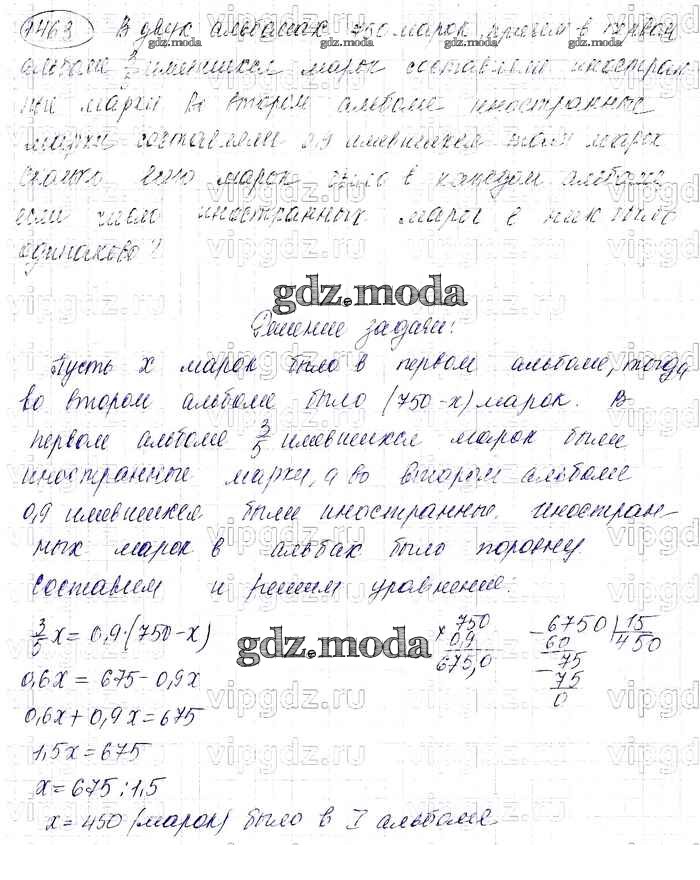 1463 В двух альбомах 750 марок, причем в первом
альбоме 3/5 имеющихся марок составляли иностран
ные марки. Во втором альбоме иностранные
марки составляли 0,9 имевшихся там марок
Сколько всего марок было в каждом альбоме,
если число иностранных марок в них было
одинаково?
gdz.moda
Решение задачи:
Пусть x марок было в первом альбоме, тогда
во втором альбоме было (750-x) марок. В
первом альбоме 3/5 имевшихся марок были
иностранные марки, а во втором альбоме
0,9 имевшихся были иностранные. Иностран-
ных марок в альбах было поровну
Составим и решим уравнение:
3/5x = 0,9·(750-x)
0,6x = 675-0,9x
0,6x+0,9x=675
1,5x=675
x=675:1,5
x=450 (марок) было в I альбоме
× 750
0,9
675,0
- 6750 | 15
60 450
- 75
75
0
gdz.moda
vipgdz.ru